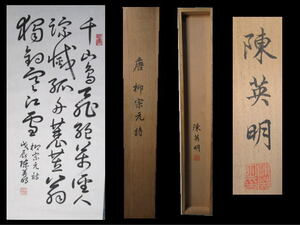 千山鳥飛絕萬徑人
踪滅孤舟蓑笠翁
獨釣寒江雪
柳宗元詩
戊辰陳英明
唐柳宗元詩
陳英明
陳英明